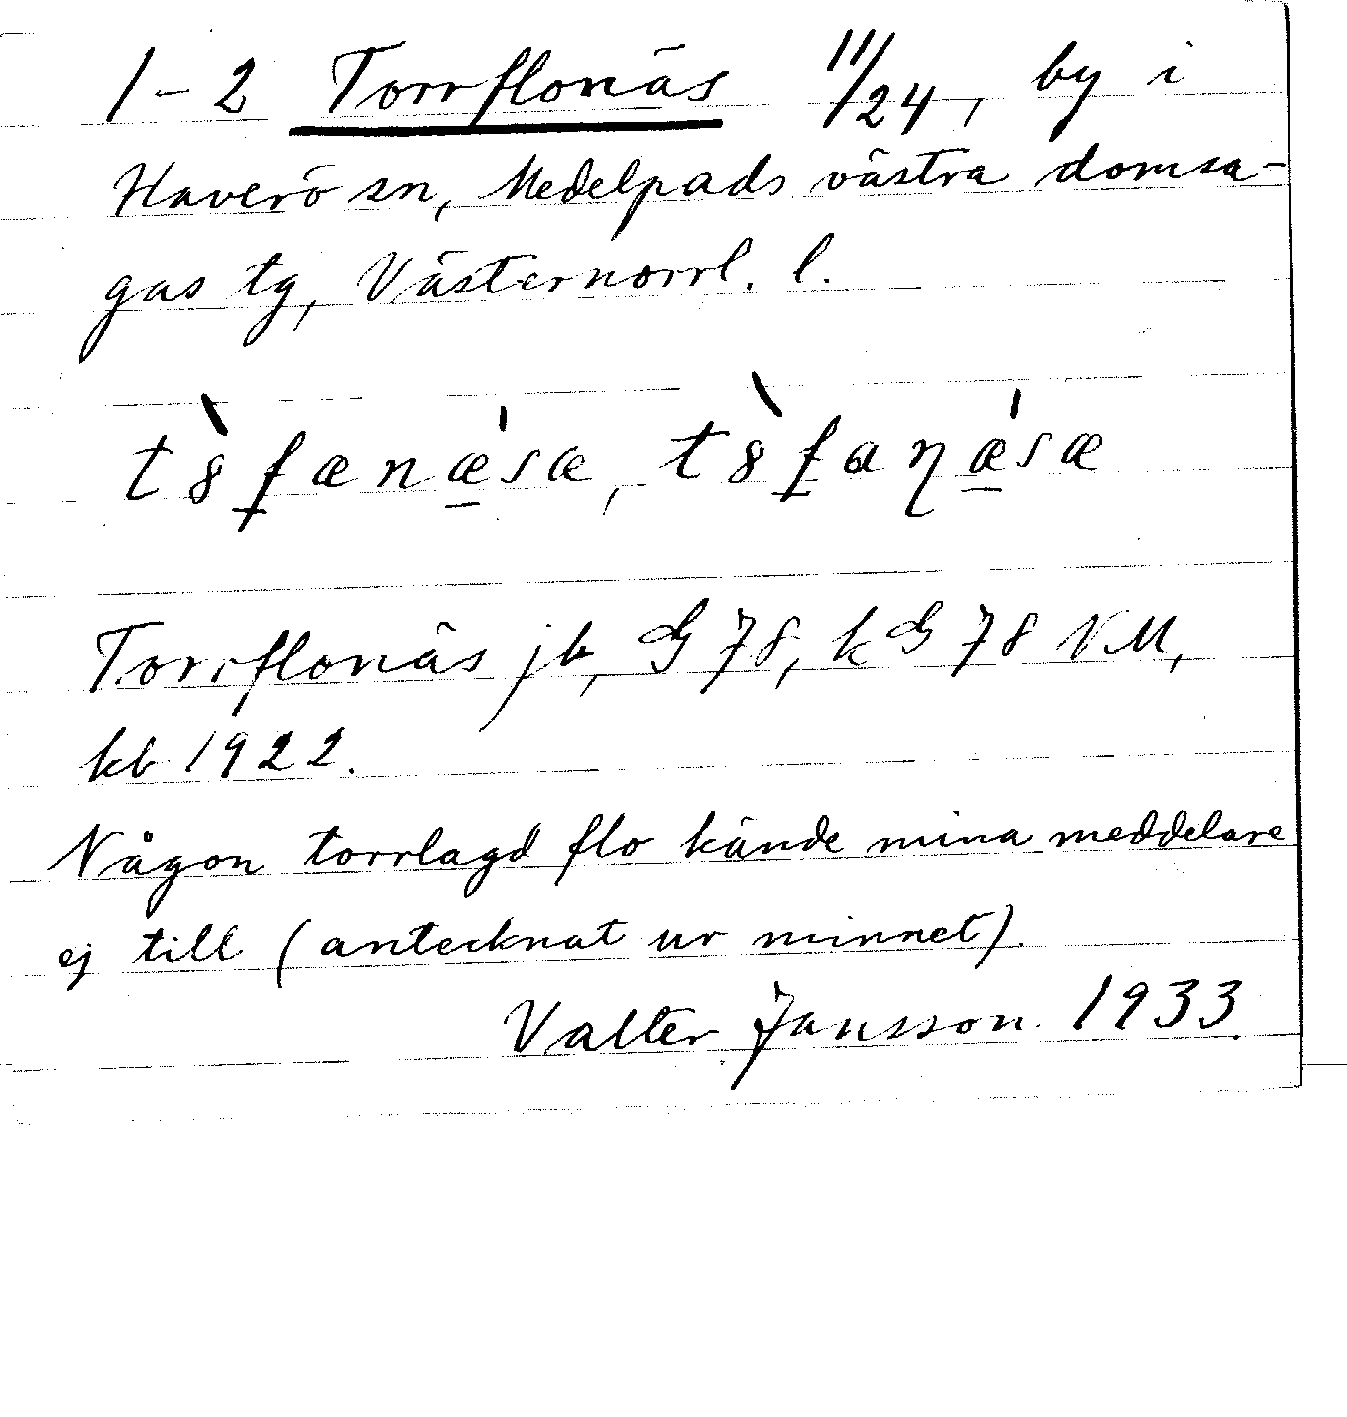 1-2 Torrflonäs 11/24, by i
Haverö sn, Medelpads västra domsa-
gas tg, Västernorrl. l.
tò̀8f̲ænǽ̲sæ, t8̀f̲aŋǽ̲sæ
Torrflonäs jb, G 78, kG 78 NM,
kb 1922.
Någon torrlagd flo kände mina meddelare
ej till (antecknat ur minnet).
Valter Jansson. 1933.